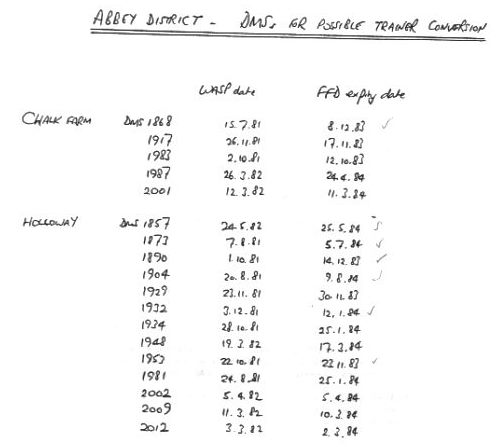 ABBEY DISTRICT - DMSs FOR POSSIBLE TRAINER CONVERSION
WASP date FFD expiry date
CHALK FARM DMS 1868 15.7.81 8.12.83 ✓
1917 26.11.81 17.11.83
1983 2.10.81 12.10.83
1987 26.3.82 24.4.84
2001 12.3.82 11.3.84
HOLLOWAY DMS 1857 24.5.82 25.5.84
1873 7.8.81 5.7.84 ✓
1890 1.10.81 14.12.83 ✓
1904 20.8.81 9.8.84 ✓
1929 23.11.81 30.11.83
1932 3.12.81 12.1.84 ✓
1934 28.10.81 25.1.84
1948 19.3.82 17.3.84
1953 22.10.81 23.11.83 ✓
1981 24.8.81 25.1.84
2002 5.4.82 5.4.84
2009 11.3.82 10.3.84
2012 3.3.82 2.3.84